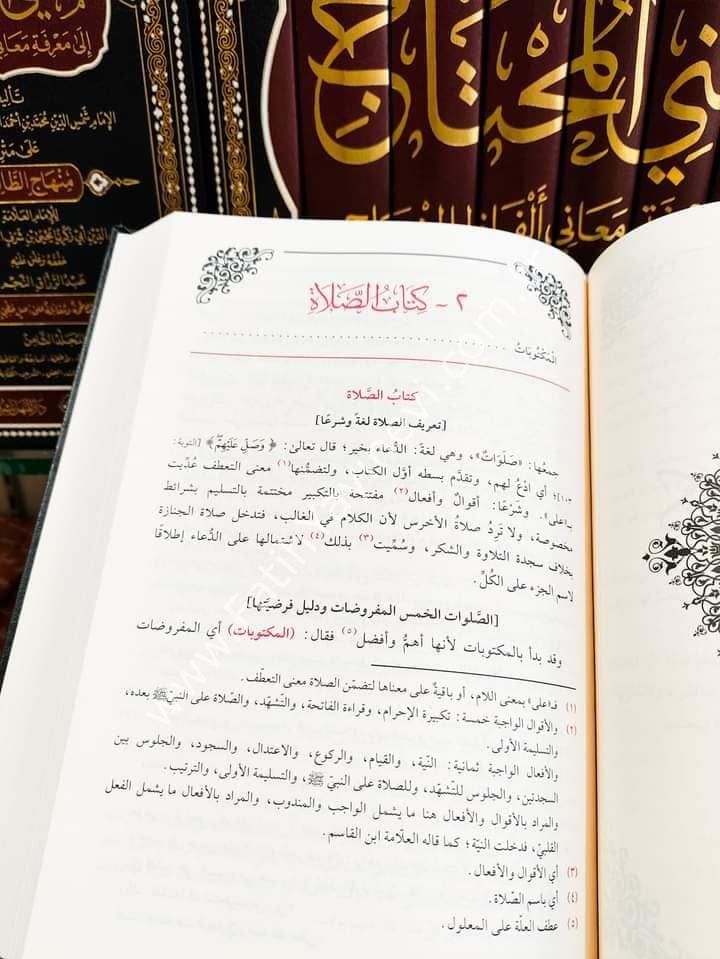 إلى معرفة معاني
تأليف
الإمام شمس الدين محمد بن أحمد
على متن
منهاج الطا
للإمام العلامة
مغني المحتاج
معاني ألفاظ المنهاج
٢ - كِتَابُ الصَّلَاة
المَكْتُوبَاتُ ........................................
كتابُ الصَّلاة
[تعريف الصلاة لغةً وشرعًا]
جمعُها: «صَلَوَاتٌ»، وهي لغةً: الدُّعاء بخير؛ قال تعالىٰ: ﴿وَصَلِّ عَلَيْهِمْ﴾ [التوبة:
١٠٣] أي ادْعُ لهم، وتقدَّم بسطه أوَّل الكتاب، ولتضمُّنها(١) معنى التعطف عُدِّيت
بـ«على». وشرعًا: أقوالٌ وأفعال(٢) مفتتحة بالتكبير مختتمة بالتسليم بشرائط
مخصوصة، ولا تَرِدُ صلاةُ الأخرس لأن الكلام في الغالب، فتدخل صلاة الجنازة
بخلاف سجدة التلاوة والشكر، وسُمِّيت(٣) بذلك(٤) لاشتمالها على الدُّعاء إطلاقًا
لاسم الجزء على الكُلِّ.
[الصَّلوات الخمس المفروضات ودليل فرضيَّتها]
وقد بدأ بالمكتوبات لأنها أهمُّ وأفضل(٥) فقال: (المكتوبات) أي المفروضات
(١) فـ«على» بمعنى اللام، أو باقيةٌ على معناها لتضمّن الصلاة معنى التعطّف.
(٢) والأقوال الواجبة خمسة: تكبيرة الإحرام، وقراءة الفاتحة، والتّشهّد، والصّلاة على النبيّ ﷺ بعده،
والتسليمة الأولى.
والأفعال الواجبة ثمانية: النّية، والقيام، والركوع، والاعتدال، والسجود، والجلوس بين
السجدتين، والجلوس للتّشهّد، وللصلاة على النبيّ ﷺ، والتسليمة الأولى، والترتيب.
والمراد بالأقوال والأفعال هنا ما يشمل الواجب والمندوب، والمراد بالأفعال ما يشمل الفعل
القلبيّ، فدخلت النيّة؛ كما قاله العلّامة ابن القاسم.
(٣) أي الأقوال والأفعال.
(٤) أي باسم الصّلاة.
(٥) عطف العلّة على المعلول.